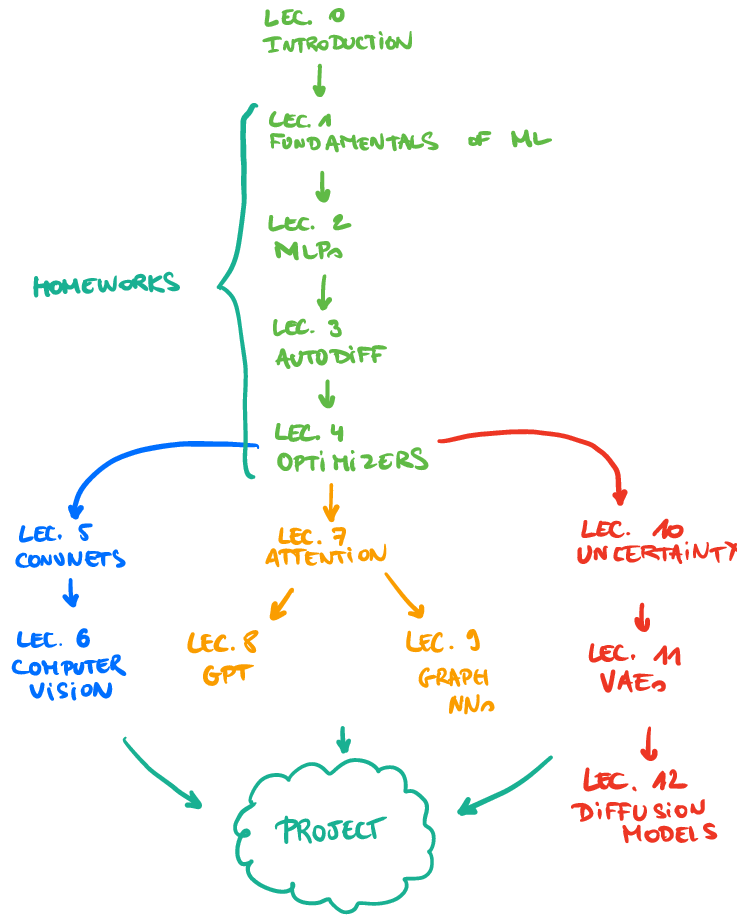 LEC. 0
INTRODUCTION
LEC. 1
FUNDAMENTALS OF ML
LEC. 2
MLPs
HOMEWORKS
LEC. 3
AUTODIFF
LEC. 4
OPTIMIZERS
LEC. 5
CONVNETS
LEC. 6
COMPUTER
VISION
LEC. 7
ATTENTION
LEC. 8
GPT
LEC. 9
GRAPH
NNs
LEC. 10
UNCERTAINTY
LEC. 11
VAEs
LEC. 12
DIFFUSION
MODELS
PROJECT